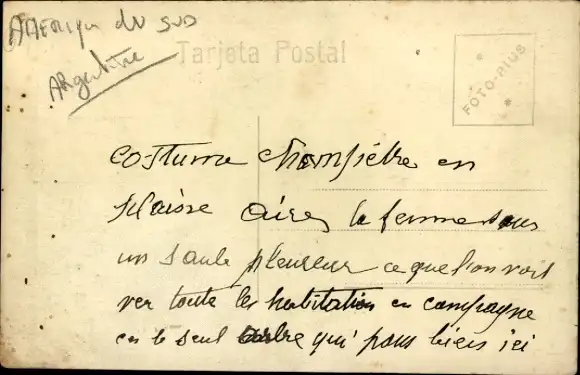 AMERIQUE DU SUD
ARgentine
Tarjeta Postal
FOTO-RIUS
costume chanpétre en
Plaisre Aires la femme sous
un saule pleureur ce que l'on voit
ver toute les habitation en campagne
ces le seul arbre qui pous bien ici